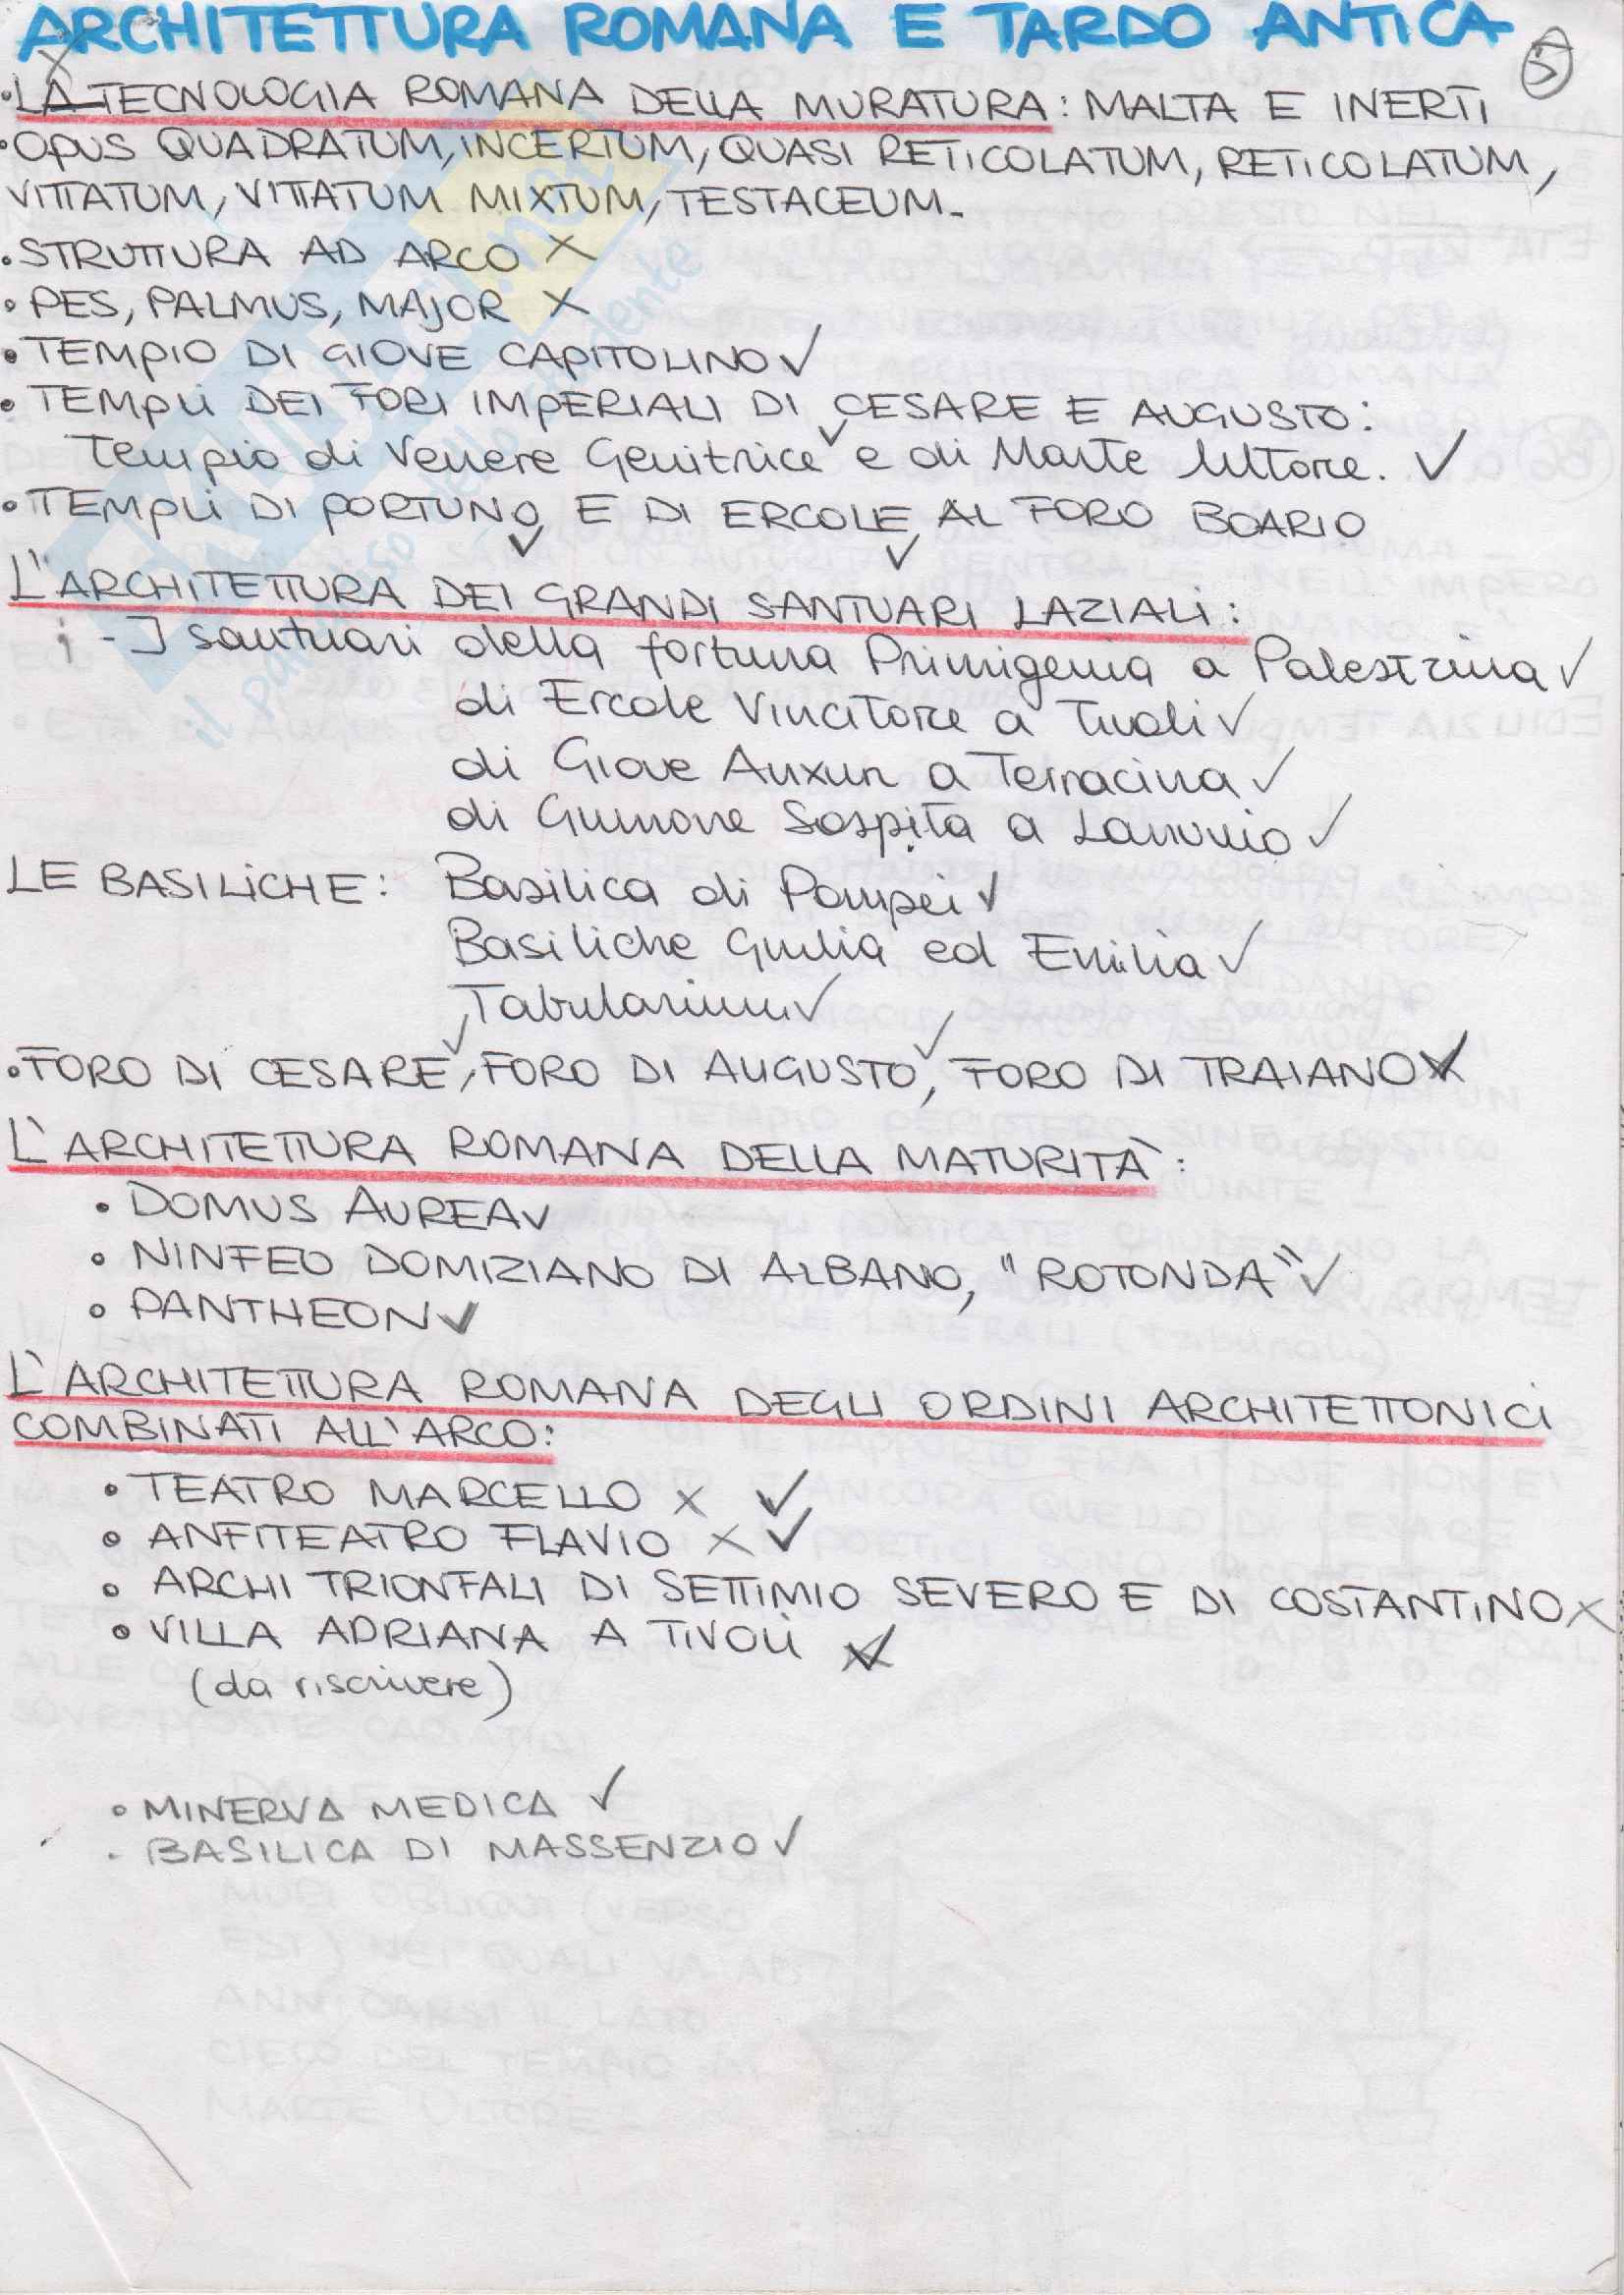 ARCHITETTURA ROMANA E TARDO ANTICA
5
• LA TECNOLOGIA ROMANA DELLA MURATURA: MALTA E INERTI
• OPUS QUADRATUM, INCERTUM, QUASI RETICOLATUM, RETICOLATUM,
VITTATUM, VITTATUM MIXTUM, TESTACEUM.
• STRUTTURA AD ARCO X
• PES, PALMUS, MAJOR X
• TEMPIO DI GIOVE CAPITOLINO ✓
• TEMPLI DEI FORI IMPERIALI DI CESARE E AUGUSTO:
Tempio di Venere Genitrice ✓ e di Marte Ultore. ✓
• TEMPLI DI PORTUNO ✓ E DI ERCOLE ✓ AL FORO BOARIO
L'ARCHITETTURA DEI GRANDI SANTUARI LAZIALI:
- I santuari della fortuna Primigenia a Palestrina ✓
di Ercole Vincitore a Tivoli ✓
di Giove Anxur a Terracina ✓
di Giunone Sospita a Lanuvio ✓
LE BASILICHE: Basilica di Pompei ✓
Basiliche Giulia ed Emilia ✓
Tabularium ✓
• FORO DI CESARE ✓, FORO DI AUGUSTO ✓, FORO DI TRAIANO X ✓
L'ARCHITETTURA ROMANA DELLA MATURITÀ:
• DOMUS AUREA ✓
• NINFEO DOMIZIANO DI ALBANO, "ROTONDA" ✓
• PANTHEON ✓
L'ARCHITETTURA ROMANA DEGLI ORDINI ARCHITETTONICI
COMBINATI ALL'ARCO:
• TEATRO MARCELLO X ✓
• ANFITEATRO FLAVIO X ✓
• ARCHI TRIONFALI DI SETTIMIO SEVERO E DI COSTANTINO X
• VILLA ADRIANA A TIVOLI X ✓
(da riscrivere)
• MINERVA MEDICA ✓
- BASILICA DI MASSENZIO ✓